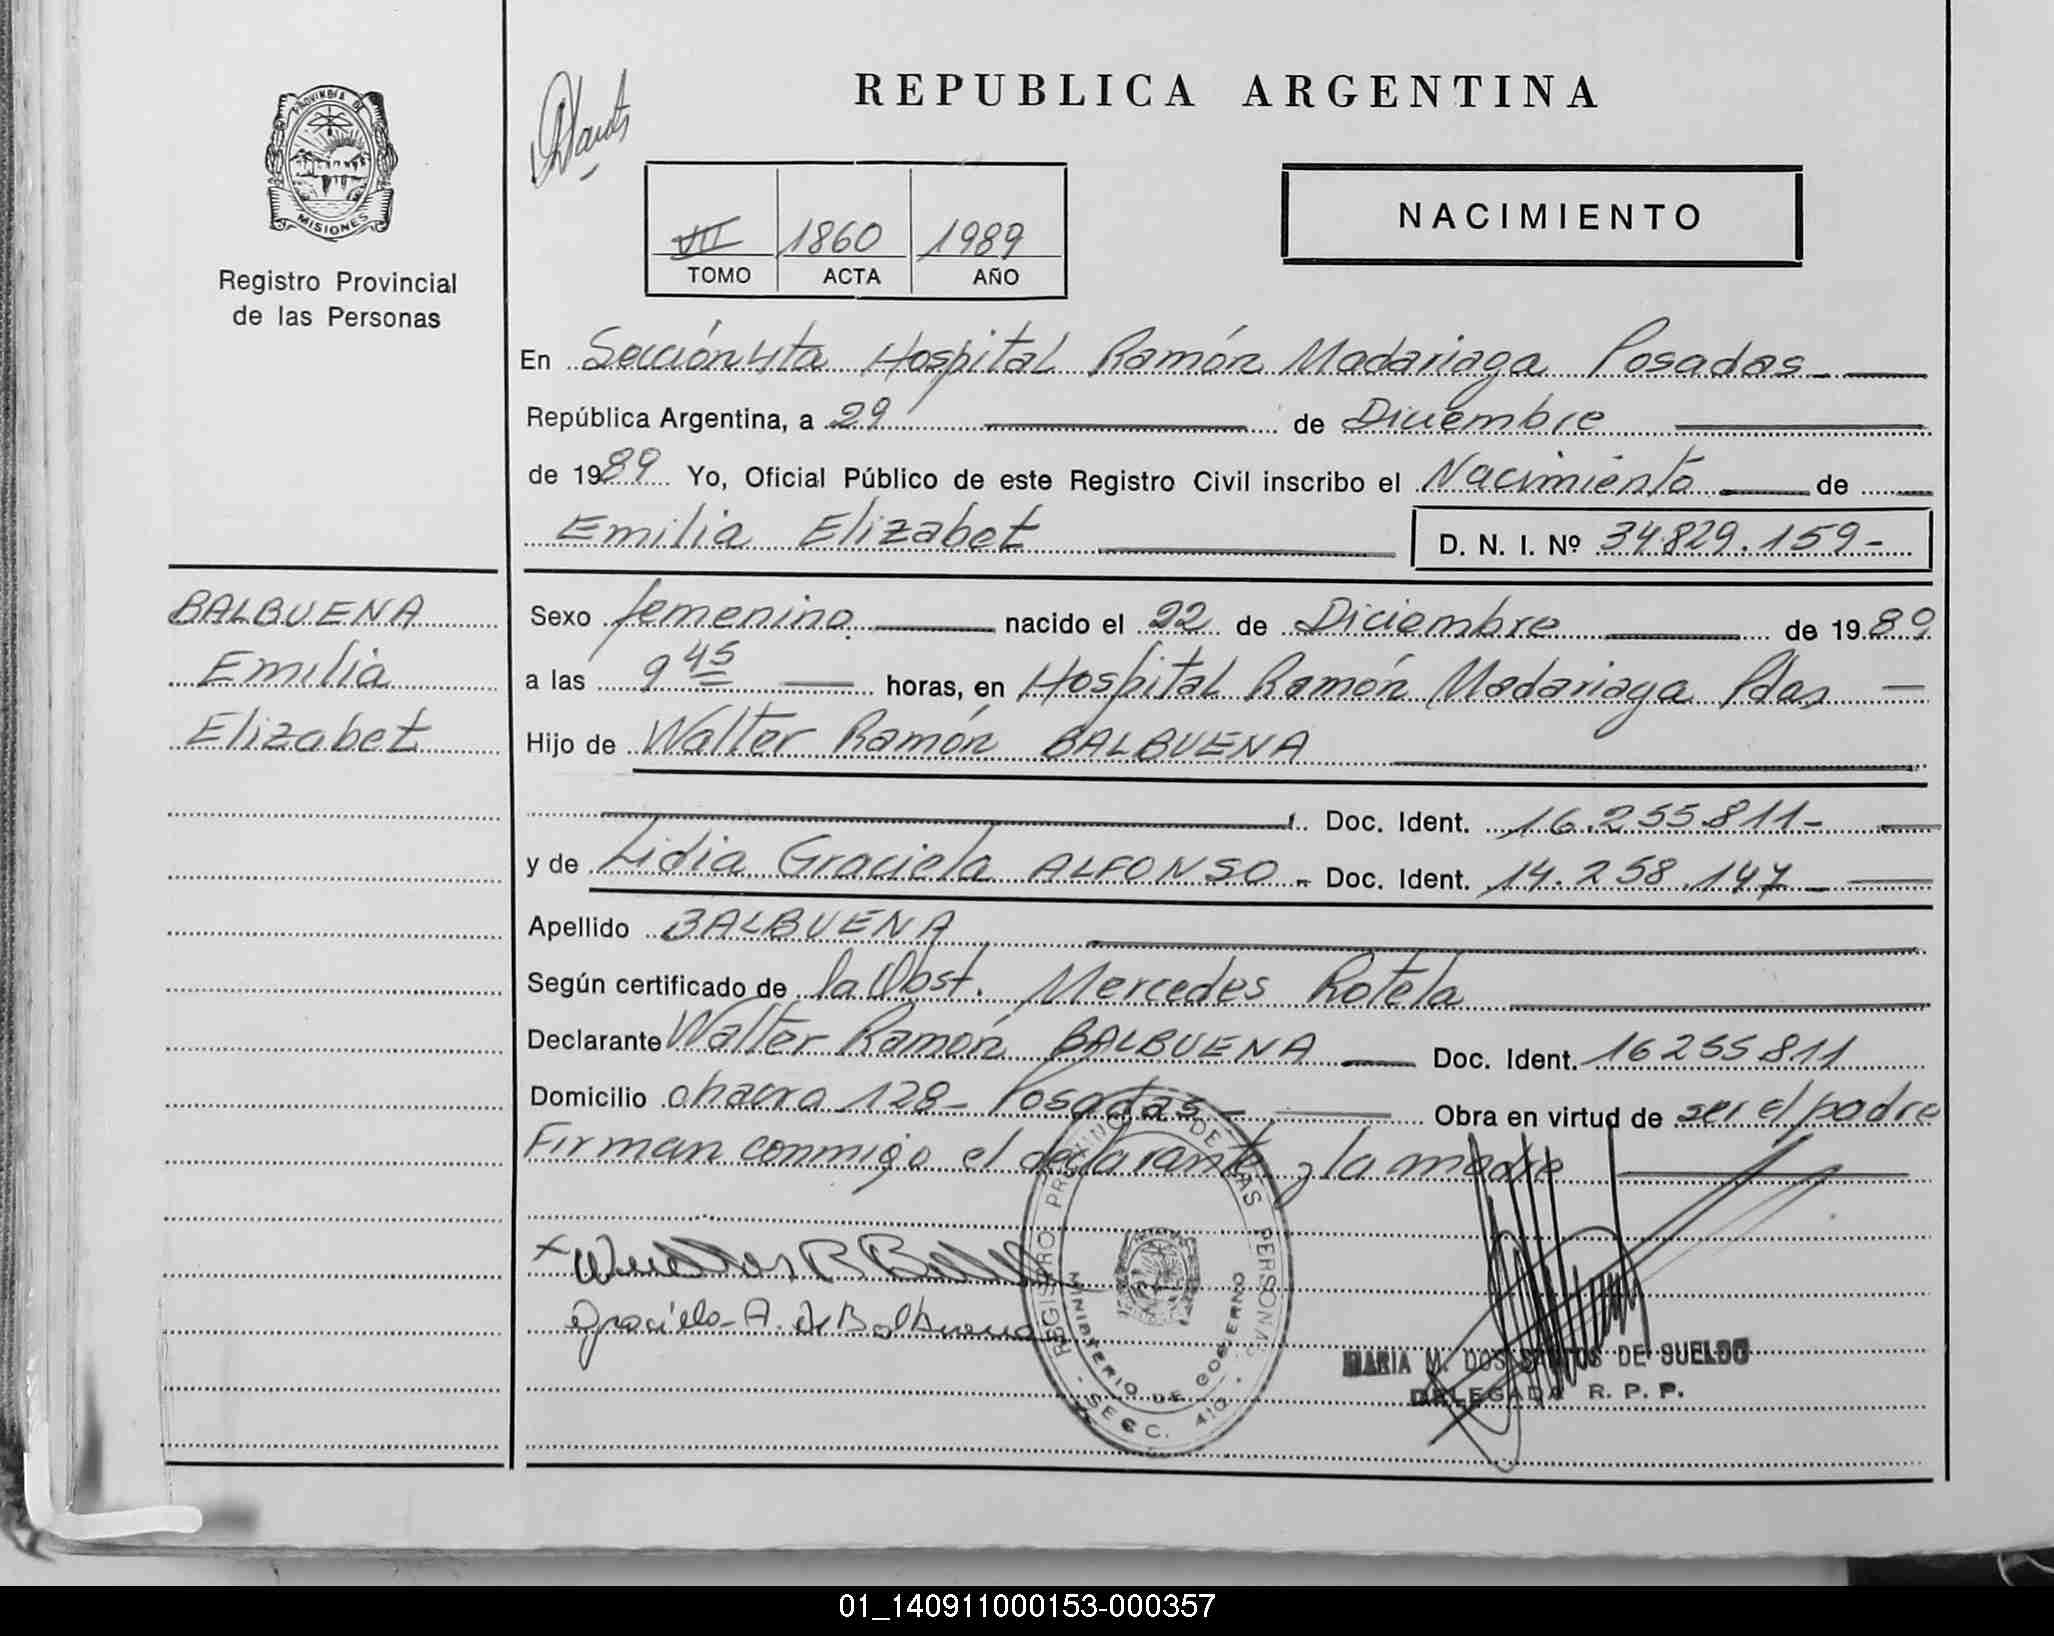 REPUBLICA ARGENTINA
PROVINCIA DE
MISIONES
Registro Provincial
de las Personas
VII 1860 1989
TOMO ACTA AÑO
NACIMIENTO
En Sección 4ta Hospital Ramón Madariaga Posadas
República Argentina, a 29 de Diciembre
de 1989 Yo, Oficial Público de este Registro Civil inscribo el Nacimiento de
Emilia Elizabet D. N. I. Nº 34.829.159-
BALBUENA
Emilia
Elizabet
Sexo femenino nacido el 22 de Diciembre de 1989
a las 9 45 horas, en Hospital Ramón Madariaga Pdas
Hijo de Walter Ramón BALBUENA
Doc. Ident. 16.255.811-
y de Lidia Graciela ALFONSO - Doc. Ident. 14.258.147 -
Apellido BALBUENA
Según certificado de la Obst. Mercedes Rotela
Declarante Walter Ramón BALBUENA Doc. Ident. 16 255 811
Domicilio chacra 128 - Posadas - Obra en virtud de ser el padre
Firman conmigo el declarante y la madre
REGISTRO PROVINCIAL DE LAS PERSONAS
MINISTERIO DE GOBIERNO
- SECC. 4ta -
Graciela A. de Balbuena
MARIA M. DOS SANTOS DE SUELDO
DELEGADA R. P. P.
01_140911000153-000357